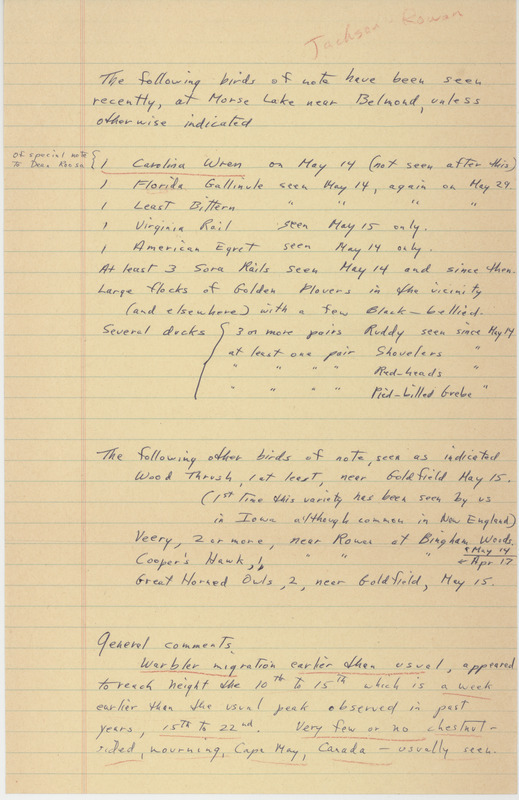 Jackson - Rowan
The following birds of note have been seen
recently, at Morse Lake near Belmond, unless
otherwise indicated
of special note
to Dean Roosa { 1 Carolina Wren on May 14 (not seen after this)
1 Florida Gallinule seen May 14, again on May 24.
1 Least Bittern " " " "
1 Virginia Rail seen May 15 only.
1 American Egret seen May 14 only.
At least 3 Sora Rails seen May 14 and since then.
Large flocks of Golden Plovers in the vicinity
(and elsewhere) with a few Black-bellied.
Several ducks { 3 or more pairs Ruddy seen since May 14
at least one pair Shovelers "
" " " " Red-heads "
" " " " Pied-billed Grebe "
The following other birds of note, seen as indicated
Wood Thrush, 1 at least, near Goldfield May 15.
(1st time this variety has been seen by us
in Iowa although common in New England)
Veery, 2 or more, near Rowan at Bingham Woods.
← May 14
Cooper's Hawk, 1, " " " ← Apr 17
Great Horned Owls, 2, near Goldfield, May 15.
General comments.
Warbler migration earlier than usual, appeared
to reach height the 10th to 15th which is a week
earlier than the usual peak observed in past
years, 15th to 22nd. Very few or no chestnut-
sided, mourning, Cape May, Canada - usually seen.